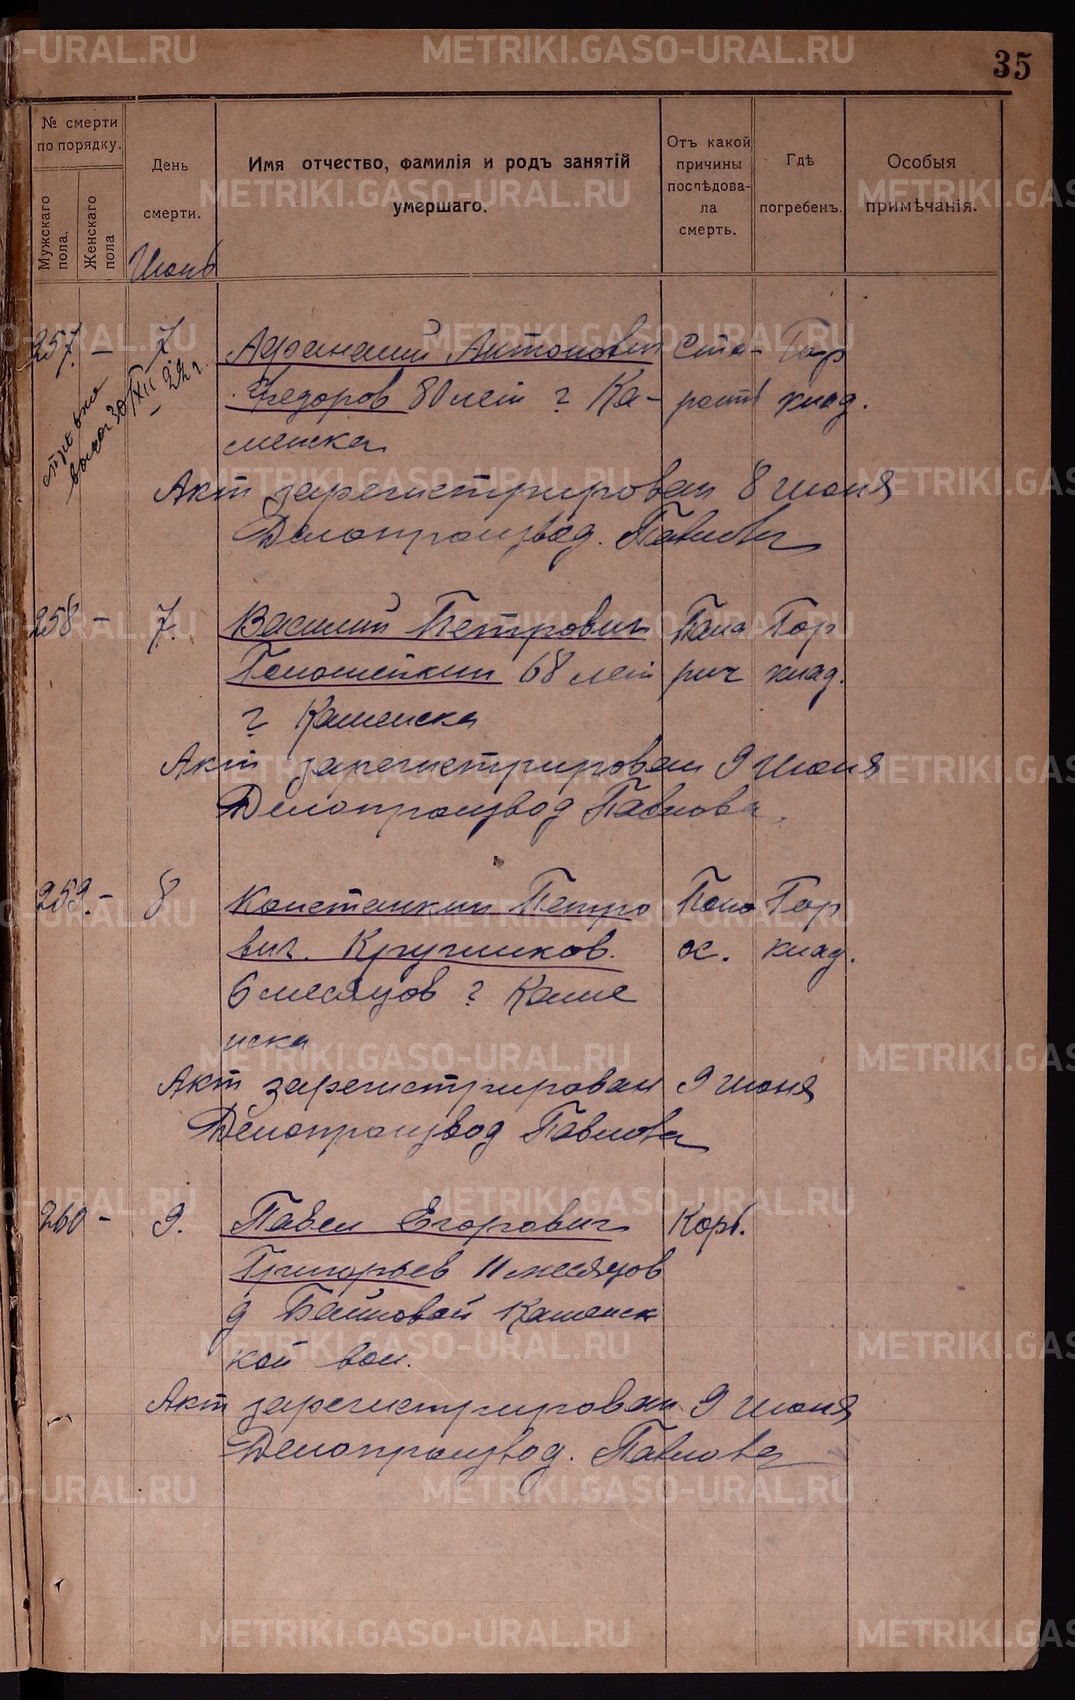 35
№ смерти по порядку.
Мужскаго пола.
Женскаго пола
День смерти.
Имя отчество, фамилія и родъ занятій умершаго.
Отъ какой причины послѣдовала смерть.
Гдѣ погребенъ.
Особыя примѣчанія.
Июнь
257. – 7 Афанасий Антонович Ста- Гор
Федоров 80 лет г Ка- рости клад.
менска
30/XII – 22 г.
Акт зарегистрирован 8 июня
Делопроизвод. Павлова
258 – 7. Василий Петрович Пара Гор
68 лет лич клад.
г Каменска
Акт зарегистрирован 9 июня
Делопроизвод Павлова.
259. – 8 Константин Петро Поно Гор
вич. Кругликов. с. клад.
6 месяцов г Каме
нска
Акт зарегистрирован 9 июня
Делопроизвод Павлова
260 – 9. Павел Егорович Корь.
Григорьев 11 месяцов
д Байновой Каменск
кой вол.
Акт зарегистрирован 9 июня
Делопроизвод. Павлова
METRIKI.GASO-URAL.RU